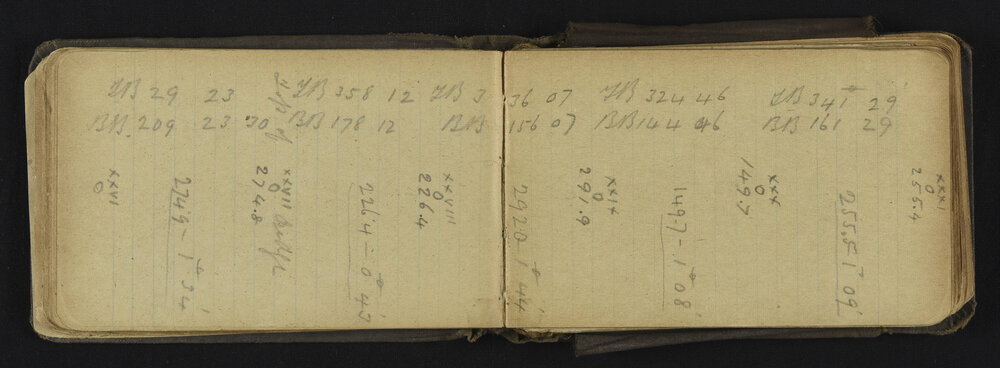 FB 29 23
BB 209 23 30
FB 358 12
BB 178 12
FB 3 36 07
BB 156 07
FB 324 46
BB 144 46
FB 341 29
BB 161 29
XXVI
O
274.9 - 1° 34'
XXVII
O
274.8
226.4 - 0° 43'
XXVIII
O
226.4
292.0 - 1° 44'
XXIX
O
291.9
149.7 - 1° 08'
XXX
O
149.7
255.5 1° 09'
XXXI
O
255.4